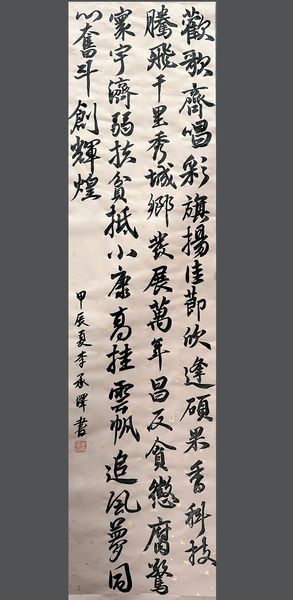 歡歌齊唱彩旗揚佳節欣逢碩果香科技
騰飛千里秀城鄉發展萬年昌反貪懲腐驚
寰宇濟弱扶貧抵小康高挂雲帆追風夢同
心奮斗創輝煌
甲辰夏李承暉書